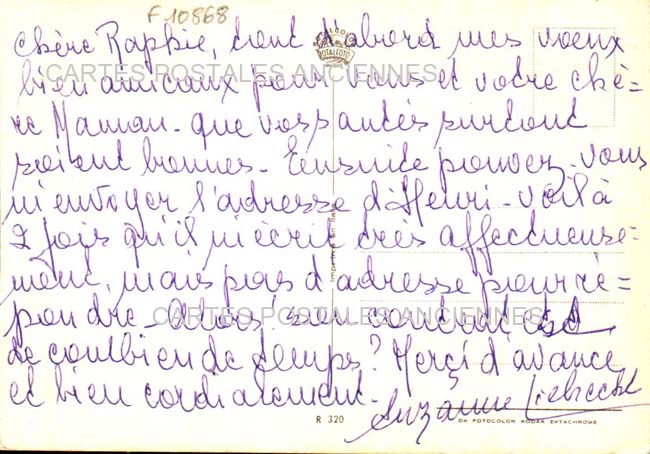 F10868
Chère Raphie, tout d'abord mes voeux
CARTES POSTALES ANCIENNES
bien amicaux pour vous et votre chè=
re Maman - que vos santés surtout
soient bonnes - Ensuite pouvez-vous
m'envoyer l'adresse d'Henri - Voilà
2 fois qu'il m'écrit très affectueuse=
ment, mais pas d'adresse pour ré=
pondre - Alors! son contrat est
CARTES POSTALES ANCIENNES
de combien de temps? Merci d'avance
et bien cordialement -
Suzanne
R 320
DA FOTOCOLOR KODAK EKTACHROME